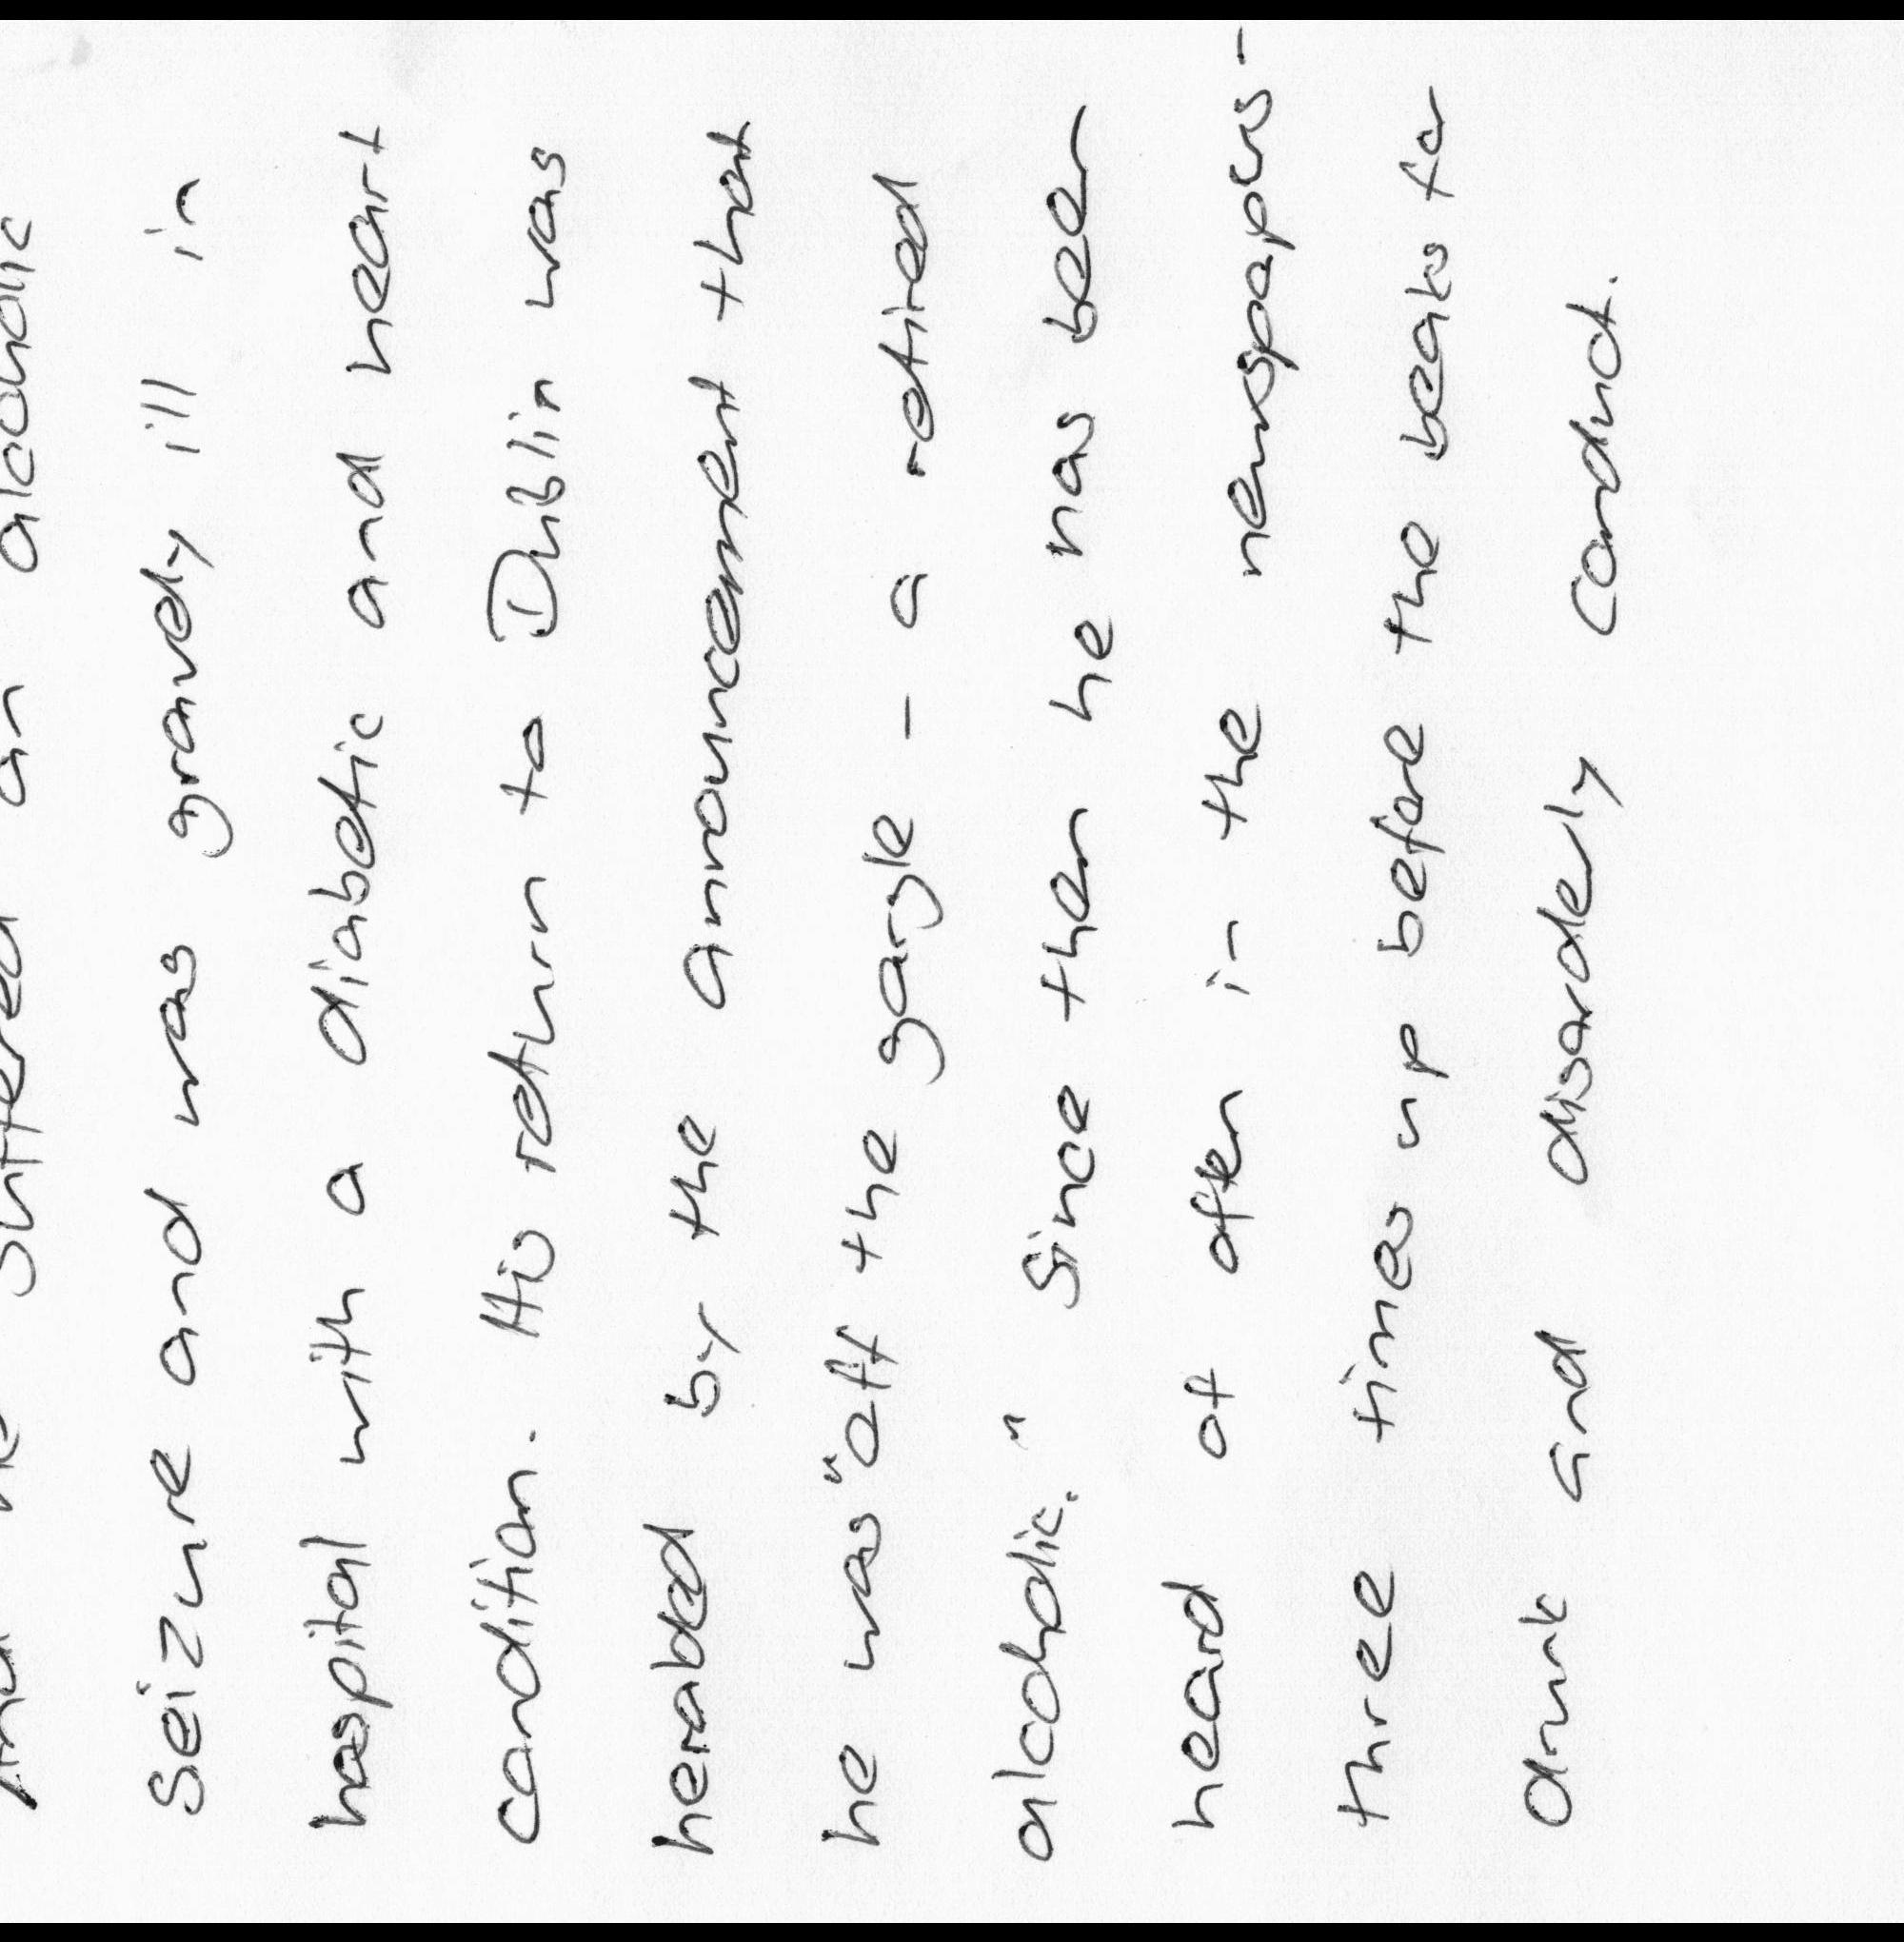 And he suffered an alcoholic
Seizure and was gravely ill in
hospital with a diabetic and heart
condition. His return to Dublin was
heralded by the announcement that
he was "off the gargle - a retired
alcoholic." Since then he has been
heard of often in the newspapers -
three times up before the beaks for
drunk and disorderly conduct.